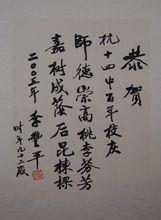 恭贺
杭十四中百年校庆
師德崇高桃李芬芳
嘉樹成蔭后昆棟樑
二〇〇三年 李豐平
时年九十二歲